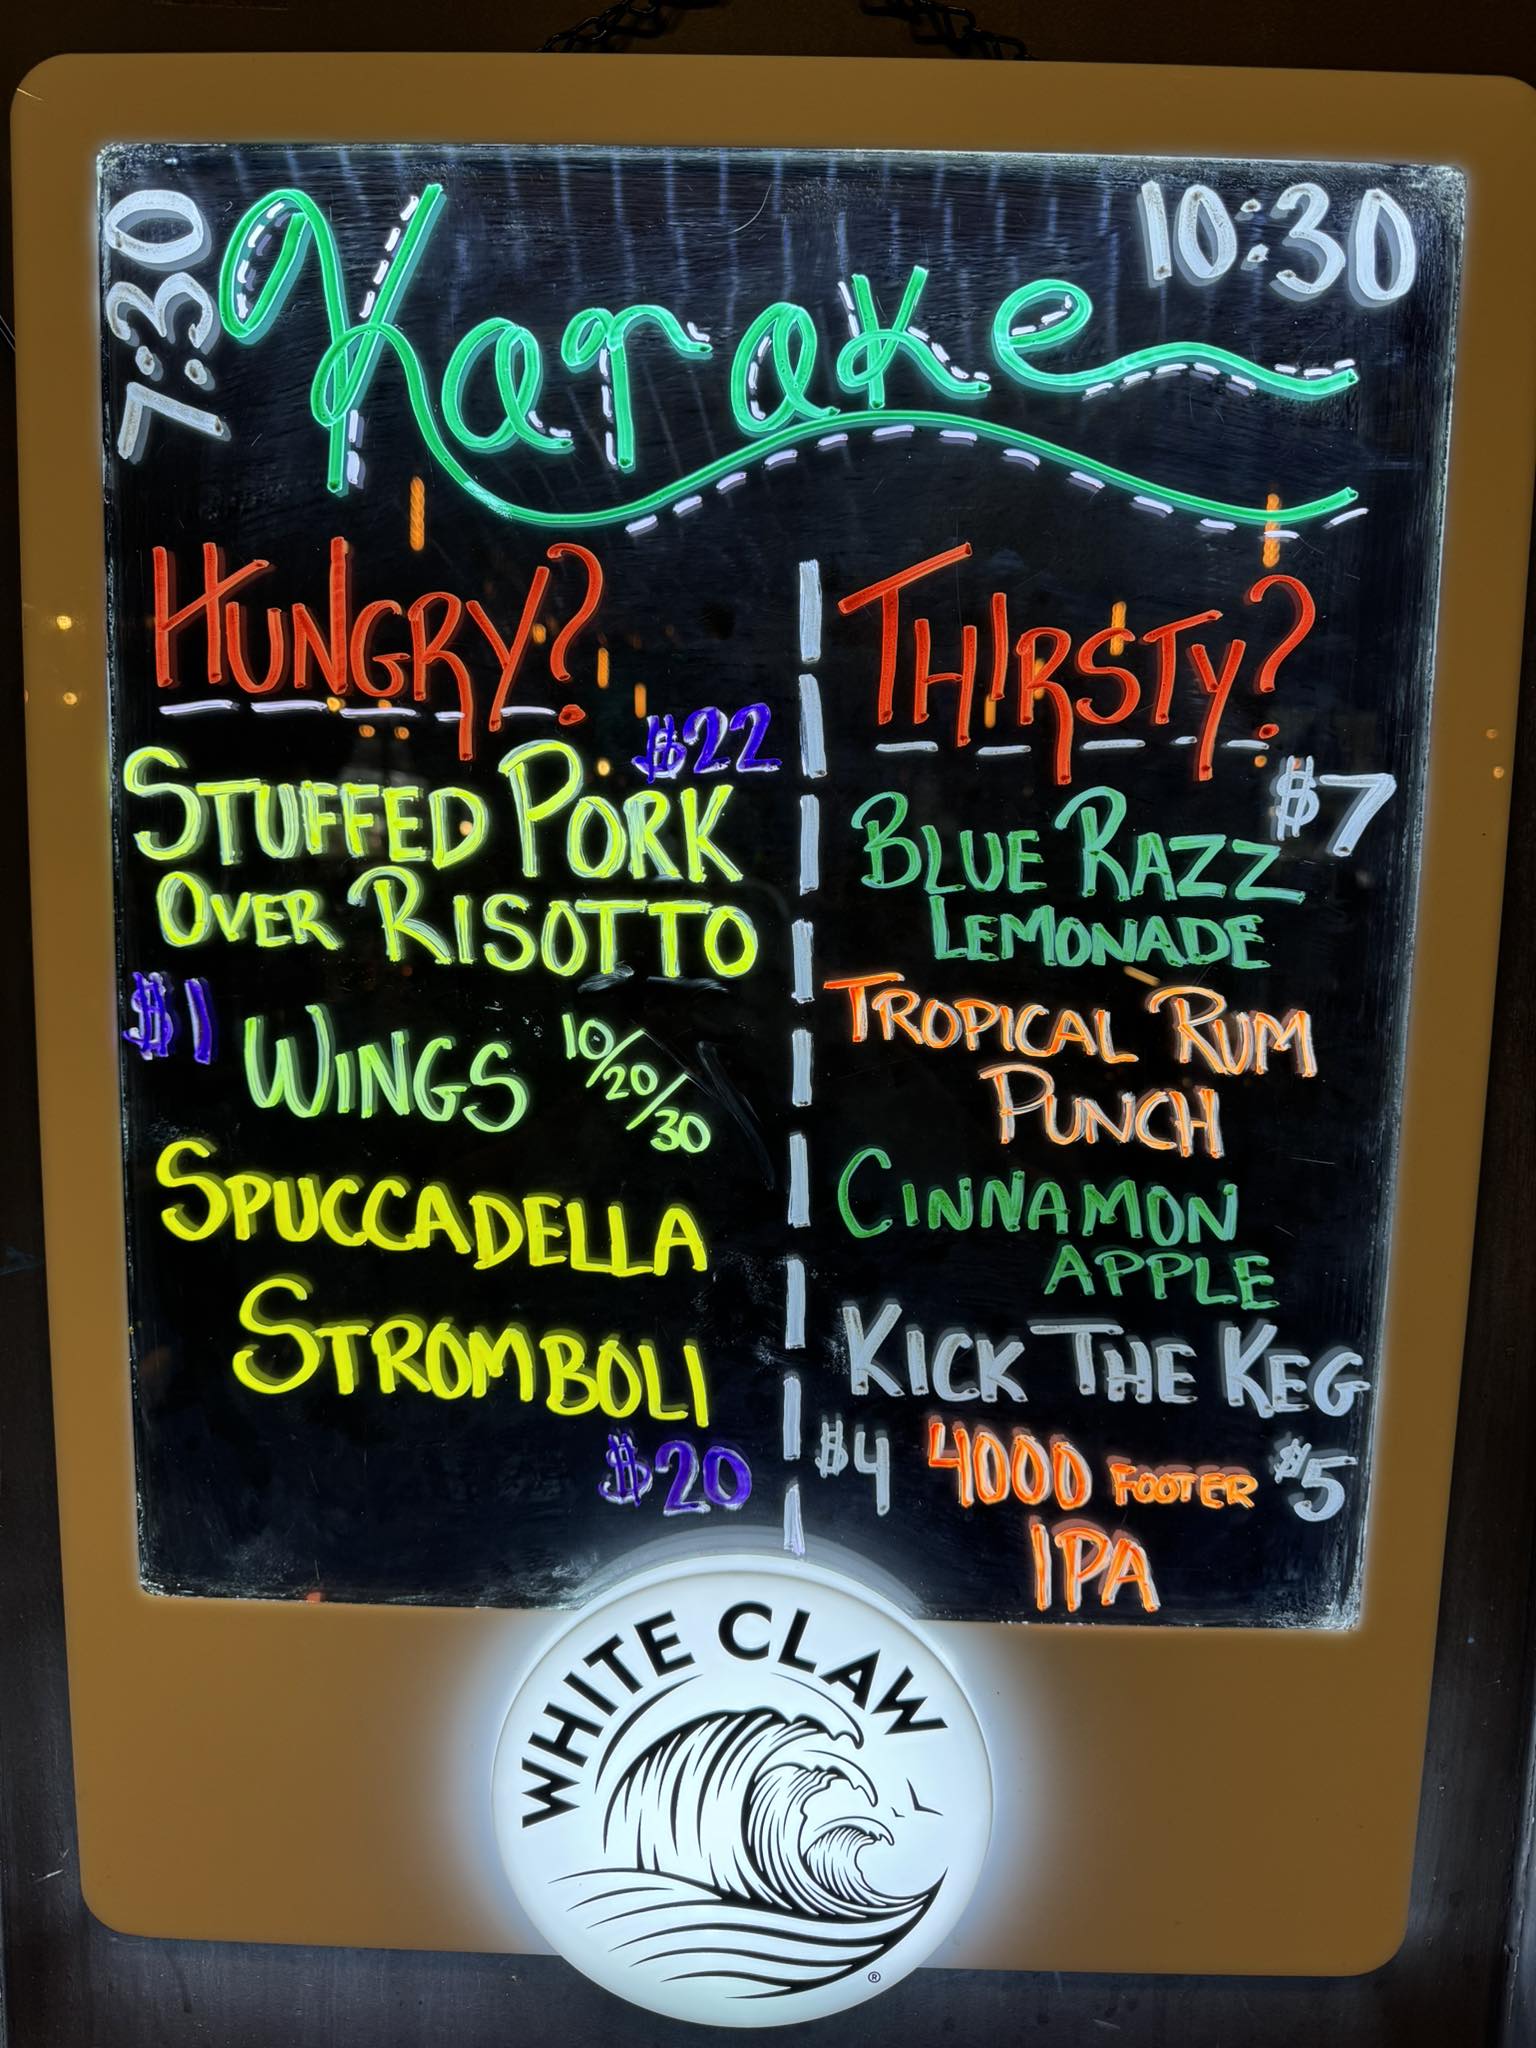 7:30
Karake
10:30
HUNGRY?
$22
STUFFED PORK
OVER RISOTTO
$1 WINGS 10/20/30
SPUCCADELLA
STROMBOLI
$20
THIRSTY?
$7
BLUE RAZZ
LEMONADE
TROPICAL RUM
PUNCH
CINNAMON
APPLE
KICK THE KEG
$4 4000 FOOTER $5
IPA
WHITE CLAW
®